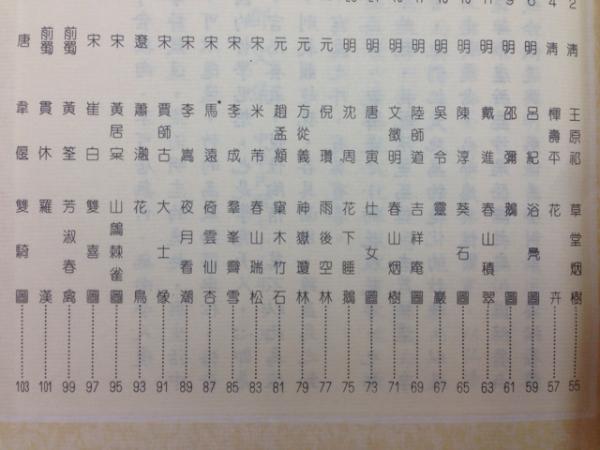 2 清 王原祁 草堂烟樹 55
4 清 惲壽平 花卉 57
6 明 呂紀 浴鳧圖 59
9 明 邵彌 鵝圖 61
明 戴進 春山積翠 63
明 陳淳 葵石圖 65
明 吳令 靈巖 67
明 陸師道 吉祥庵圖 69
明 文徵明 春山烟樹 71
明 唐寅 仕女圖 73
明 沈周 花下睡鵝 75
元 倪瓚 雨後空林 77
元 方從義 神嶽瓊林 79
元 趙孟頫 窠木竹石 81
宋 米芾 春山瑞松 83
宋 李成 羣峯霽雪 85
宋 馬遠 倚雲仙杏 87
宋 李嵩 夜月看潮 89
宋 賈師古 大士像 91
遼 蕭瀜 花鳥 93
宋 黃居寀 山鷓棘雀圖 95
宋 崔白 雙喜圖 97
前蜀 黃筌 芳淑春禽 99
前蜀 貫休 羅漢 101
唐 韋偃 雙騎圖 103